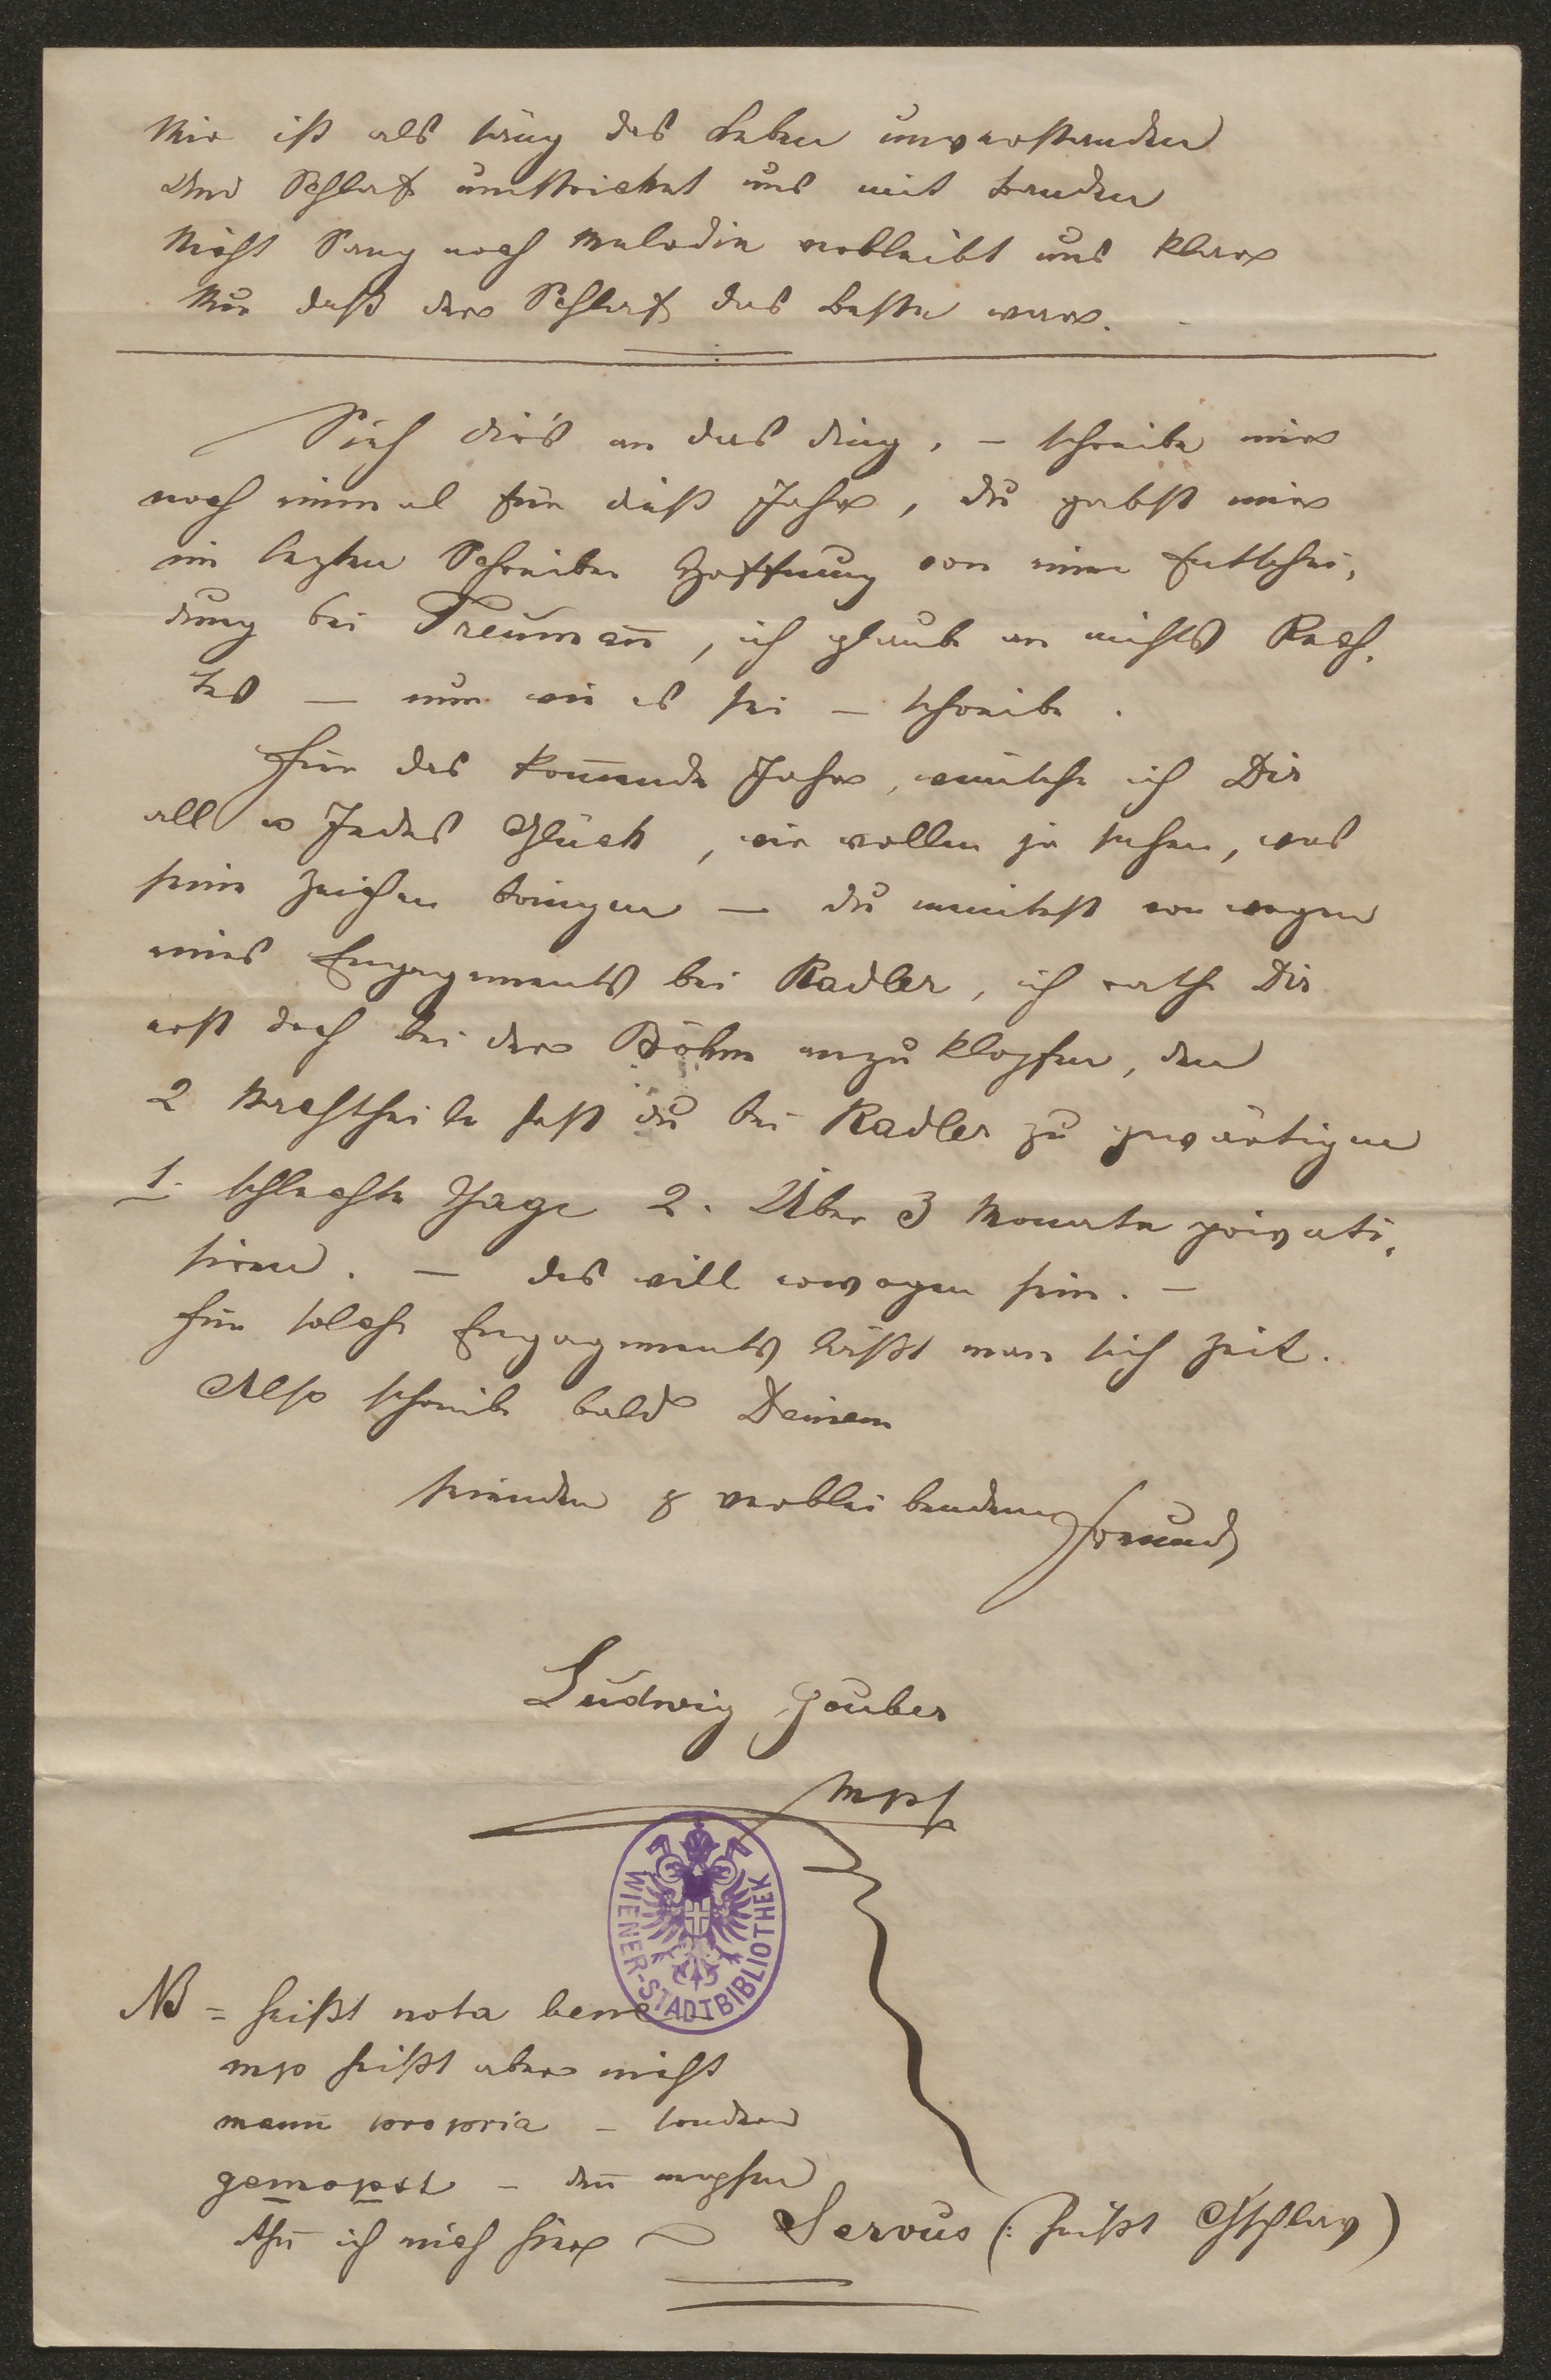 Mir ist als säng das Leben unverstanden
Und Schlaf umstrickt uns mit Banden
Nicht Sang noch Melodie verbleibt uns klar
Nur daß der Schlaf das Beste war. -
Sieh dir's an das Ding, - schreibe mir
noch einmal für dieß Jahr, du gabst mir
im lezten Schreiben Hoffnung von einer Entschei,
dung bei Treuman̅, ich glaube an nichts Rech,
tes — nun wie es sei — schreibe.
Für das kom̅ende Jahr, wünsche ich Dir
all u Jedes Glück, wir wollen ja sehen, was
seine Zeichen bringen — du meintest von wegen
eines Engagements bei Radler, ich rathe Dir
erst doch bei der Böhm anzuklopfen, den
2 Nachtheile hast du bei Radler zu gewärtigen
1. schlechte Gage 2. Über 3 Monate privati,
siren. — das will erwogen sein. —
für solche Engagements läßt man sich Zeit.
Also schreibe bald Deinem
seienden & verbleibendem Freund
Ludwig Gruber
mps
WIENER-STADTBIBLIOTHEK
NB = heißt nota bene
mp heißt aber nicht
manu propria - sondern
gemopst - den̅ mopsen
thu ich mich hier ~ Servus (: heißt G'schlav)